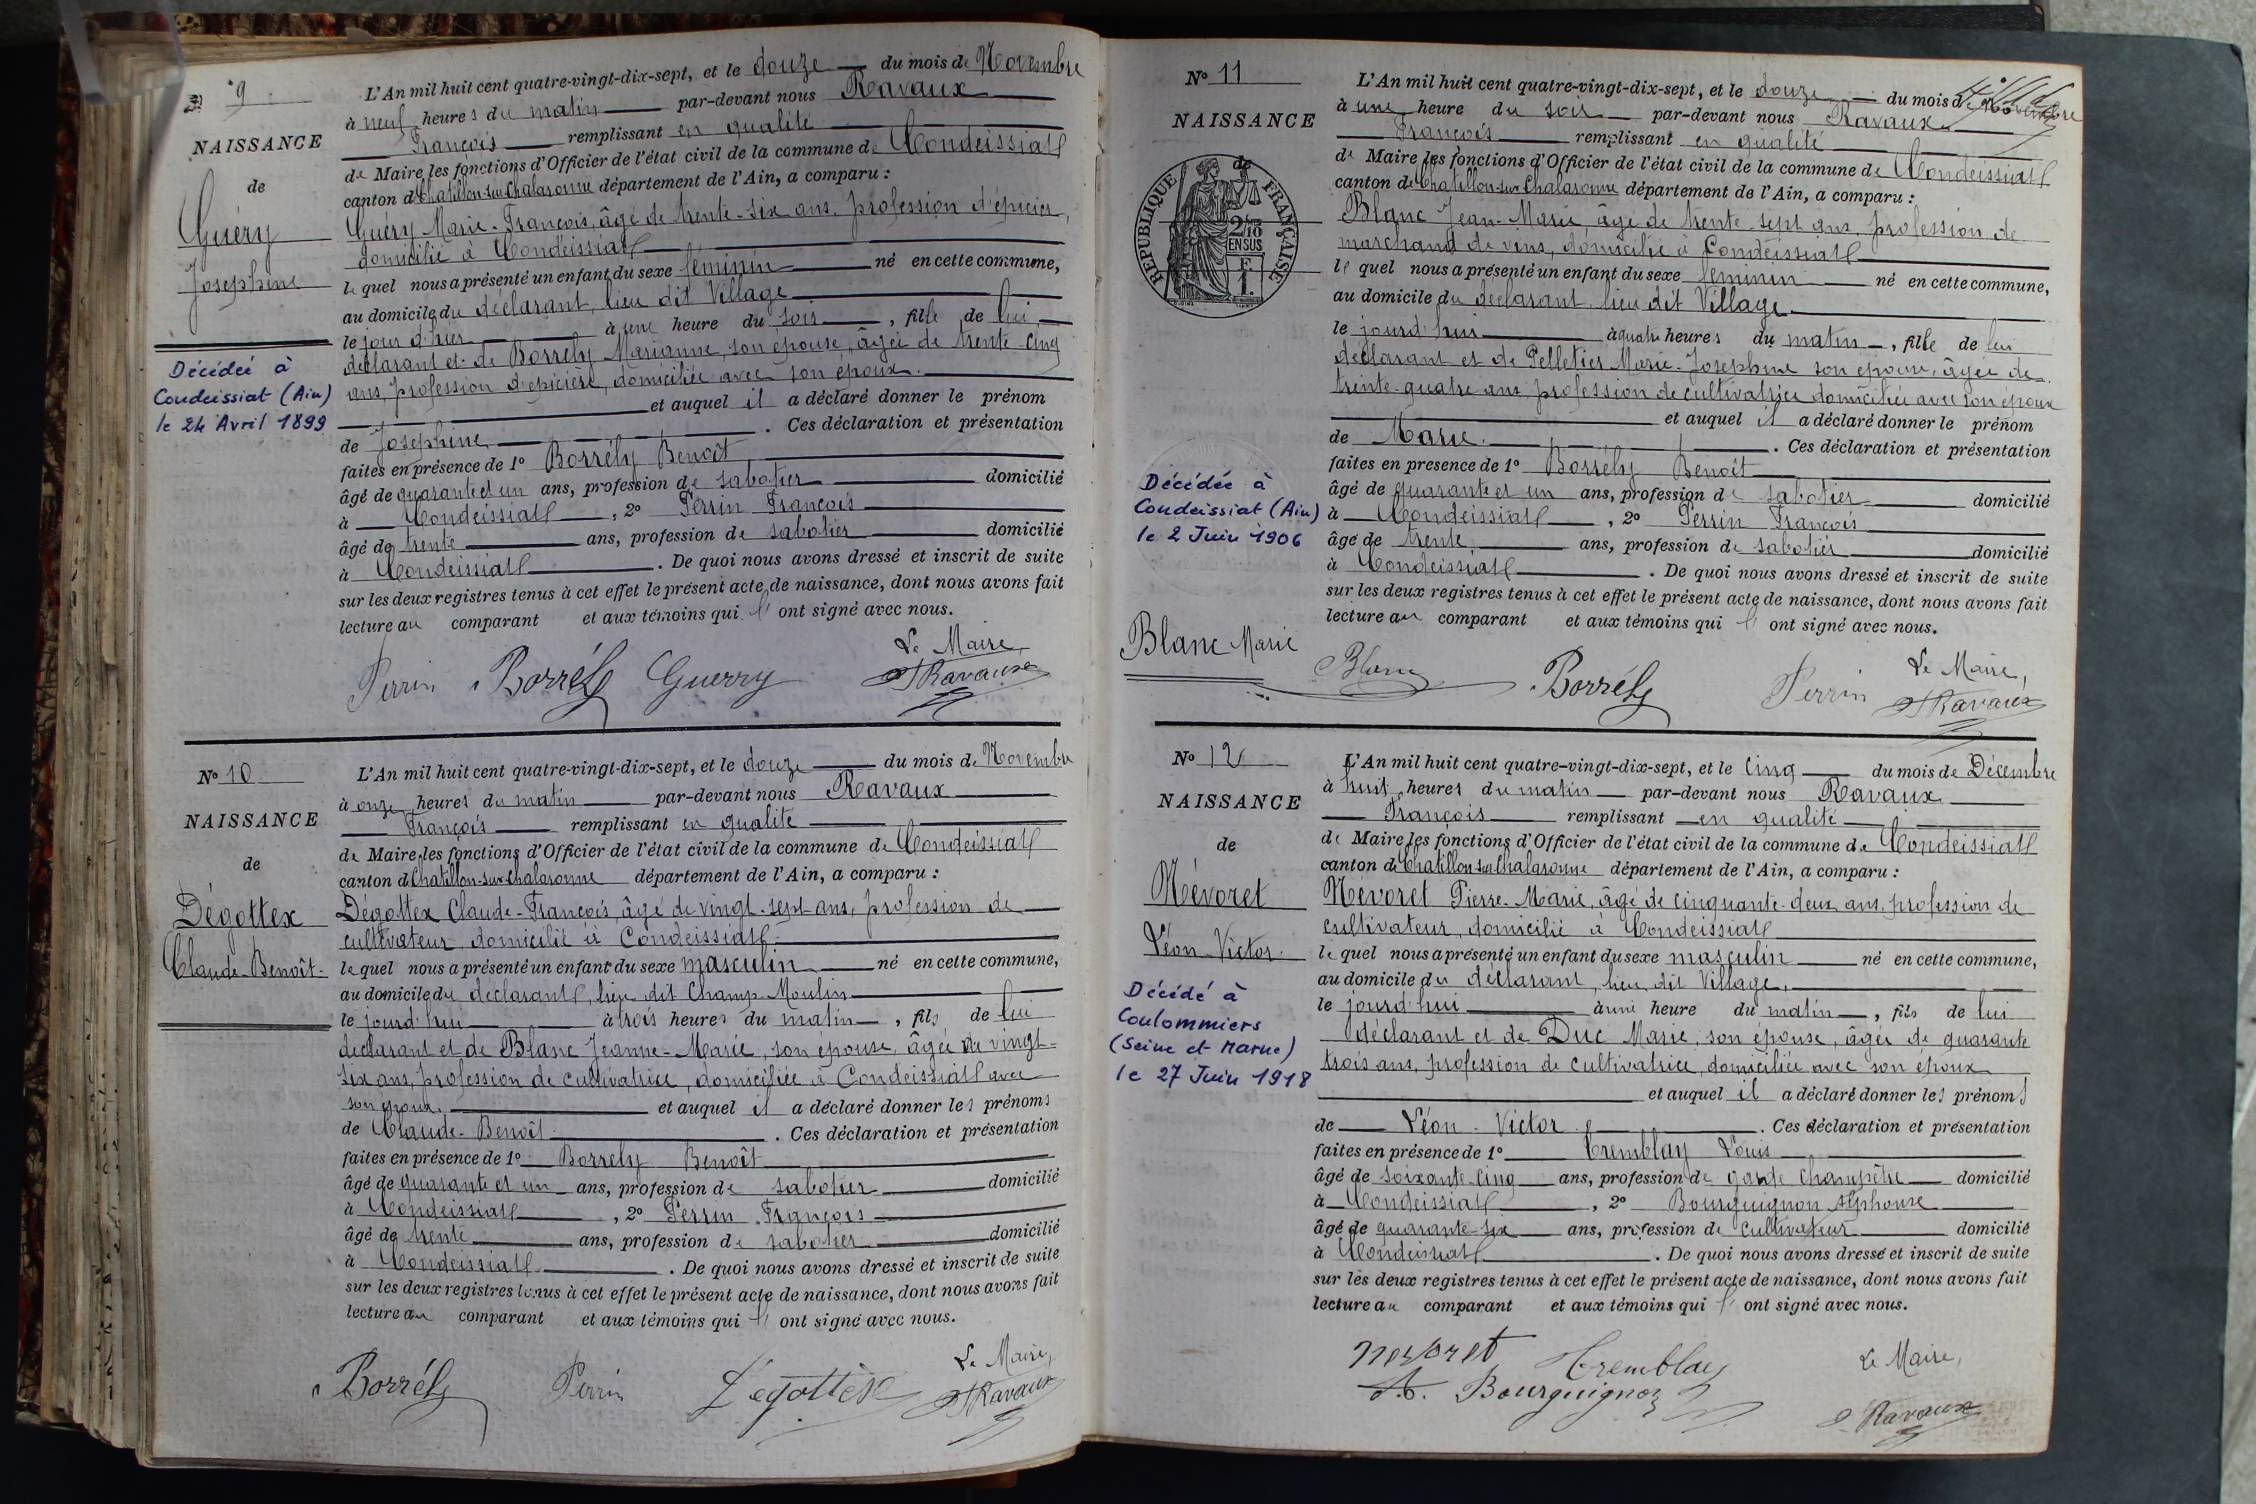 9
NAISSANCE
de
Guéry
Josephine
Décédée à
Condeissiat (Ain)
le 24 Avril 1899
L'An mil huit cent quatre-vingt-dix-sept, et le douze du mois de Novembre
à neuf heures du matin par-devant nous Ravaux
François remplissant en qualité
de Maire les fonctions d'Officier de l'état civil de la commune de Condeissiat
canton de Chatillon-sur-Chalaronne département de l'Ain, a comparu :
Guéry Marie-François, âgé de trente-six ans, profession d'épicier,
domicilié à Condeissiat
le quel nous a présenté un enfant du sexe féminin né en cette commune,
au domicile du déclarant, lieu dit Village
le jour d'hier à une heure du soir, fille de lui
déclarant et de Borrély Marianne, son épouse, âgée de trente-cinq
ans, profession d'épicière, domiciliée avec son époux.
et auquel il a déclaré donner le prénom
de Josephine. Ces déclaration et présentation
faites en présence de 1º Borrély Benoît
âgé de quarante et un ans, profession de sabotier domicilié
à Condeissiat, 2º Perrin François
âgé de trente ans, profession de sabotier domicilié
à Condeissiat. De quoi nous avons dressé et inscrit de suite
sur les deux registres tenus à cet effet le présent acte de naissance, dont nous avons fait
lecture au comparant et aux témoins qui l' ont signé avec nous.
Le Maire,
Perrin Borrély Guerry Ravaux
Nº 10
NAISSANCE
de
Dégottex
Claude-Benoît
L'An mil huit cent quatre-vingt-dix-sept, et le douze du mois de Novembre
à onze heures du matin par-devant nous Ravaux
François remplissant en qualité
de Maire les fonctions d'Officier de l'état civil de la commune de Condeissiat
canton de Chatillon-sur-Chalaronne département de l'Ain, a comparu :
Dégottex Claude-François, âgé de vingt-sept ans, profession de
cultivateur, domicilié à Condeissiat
le quel nous a présenté un enfant du sexe masculin né en cette commune,
au domicile du déclarant, lieu dit Champ-Moulin
le jourd'hui à trois heures du matin, fils de lui
déclarant et de Blanc Jeanne-Marie, son épouse, âgée de vingt-
six ans, profession de cultivatrice, domiciliée à Condeissiat avec
son époux. et auquel il a déclaré donner les prénoms
de Claude-Benoît. Ces déclaration et présentation
faites en présence de 1º Borrely Benoît
âgé de quarante et un ans, profession de sabotier domicilié
à Condeissiat, 2º Perrin François
âgé de trente ans, profession de sabotier domicilié
à Condeissiat. De quoi nous avons dressé et inscrit de suite
sur les deux registres tenus à cet effet le présent acte de naissance, dont nous avons fait
lecture au comparant et aux témoins qui l' ont signé avec nous.
Le Maire,
Borrély Perrin Dégottex Ravaux
Nº 11
NAISSANCE
de
RÉPUBLIQUE FRANÇAISE
2/10
EN SUS
Décédée à
Condeissiat (Ain)
le 2 Juin 1906
Blanc Marie
L'An mil huit cent quatre-vingt-dix-sept, et le douze du mois de Novembre
à une heure du soir par-devant nous Ravaux
François remplissant en qualité
de Maire les fonctions d'Officier de l'état civil de la commune de Condeissiat
canton de Chatillon-sur-Chalaronne département de l'Ain, a comparu :
Blanc Jean-Marie, âgé de trente-sept ans, profession de
marchand de vins, domicilié à Condeissiat
le quel nous a présenté un enfant du sexe féminin né en cette commune,
au domicile du déclarant lieu dit Village
le jourd'hui à quatre heures du matin, fille de lui
déclarant et de Pelletier Marie-Josephine son épouse, âgée de
trente-quatre ans profession de cultivatrice domiciliée avec son époux
et auquel il a déclaré donner le prénom
de Marie. Ces déclaration et présentation
faites en présence de 1º Borrély Benoît
âgé de quarante et un ans, profession de sabotier domicilié
à Condeissiat, 2º Perrin François
âgé de trente ans, profession de sabotier domicilié
à Condeissiat. De quoi nous avons dressé et inscrit de suite
sur les deux registres tenus à cet effet le présent acte de naissance, dont nous avons fait
lecture au comparant et aux témoins qui l' ont signé avec nous.
Le Maire,
Blanc Borrély Perrin Ravaux
Nº 12
NAISSANCE
de
Névoret
Léon-Victor
Décédé à
Coulommiers
(Seine et Marne)
le 27 Juin 1918
L'An mil huit cent quatre-vingt-dix-sept, et le cinq du mois de Décembre
à huit heures du matin par-devant nous Ravaux
François remplissant en qualité
de Maire les fonctions d'Officier de l'état civil de la commune de Condeissiat
canton de Chatillon sur Chalaronne département de l'Ain, a comparu :
Névoret Pierre-Marie, âgé de cinquante-deux ans, profession de
cultivateur, domicilié à Condeissiat
le quel nous a présenté un enfant du sexe masculin né en cette commune,
au domicile du déclarant, lieu dit Village,
le jourd'hui à une heure du matin, fils de lui
déclarant et de Duc Marie, son épouse, âgée de quarante
trois ans, profession de cultivatrice, domiciliée avec son époux
et auquel il a déclaré donner les prénoms
de Léon-Victor. Ces déclaration et présentation
faites en présence de 1º Tremblay Louis
âgé de soixante-cinq ans, profession de garde champêtre domicilié
à Condeissiat, 2º Bourguignon Alphonse
âgé de quarante-six ans, profession de cultivateur domicilié
à Condeissiat. De quoi nous avons dressé et inscrit de suite
sur les deux registres tenus à cet effet le présent acte de naissance, dont nous avons fait
lecture au comparant et aux témoins qui l' ont signé avec nous.
Nevoret Tremblay Le Maire,
A. Bourguignon Ravaux